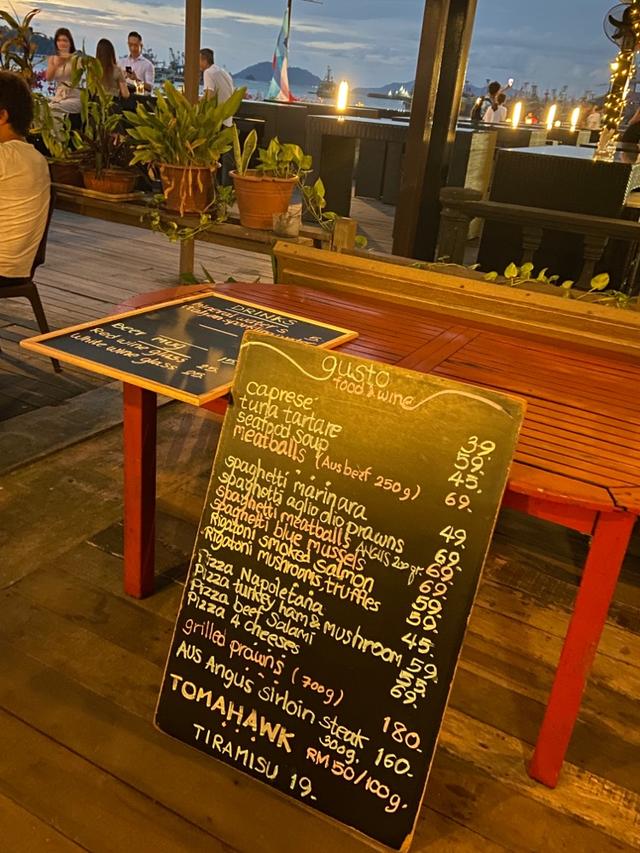 DRINKS
mineral water's 5.
Italian
Beer mug 15.
Red wine glass 25.
White wine glass 25.
gusto
food & wine
caprese 39.
tuna tartare 59.
seafood soup 45.
meatballs (Aus beef 250g) 69.
spaghetti marinara 49.
spaghetti aglio olio prawns 69.
spaghetti meatballs ANGUS 200gr. 69.
spaghetti blue mussels 69.
Rigatoni smoked salmon 59.
Rigatoni mushrooms truffles 59.
Pizza Napoletana 45.
Pizza turkey ham & mushroom 59.
Pizza beef Salami 55.
Pizza 4 cheeses 69.
grilled prawns (700g) 180.
AUS Angus sirloin steak 300g. 160.
TOMAHAWK RM 50/100g.
TIRAMISU 19.